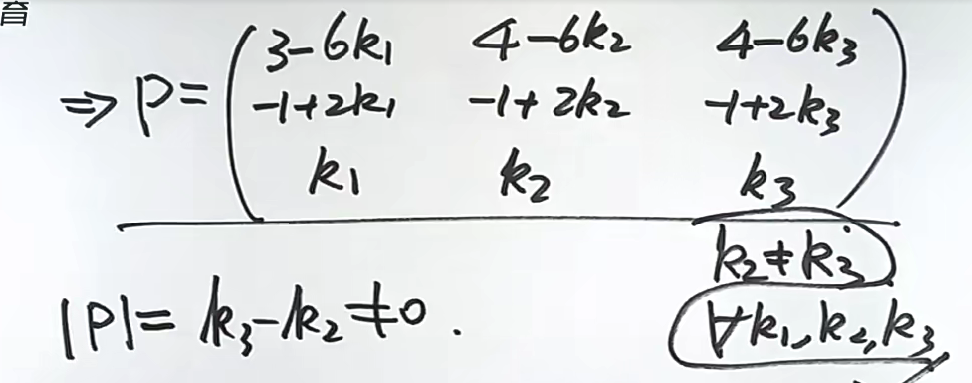 育
3-6k₁ 4-6k₂ 4-6k₃
⇒ P = -1+2k₁ -1+2k₂ -1+2k₃
k₁ k₂ k₃
k₂≠k₃
|P| = k₃-k₂≠0.
∀k₁,k₂,k₃